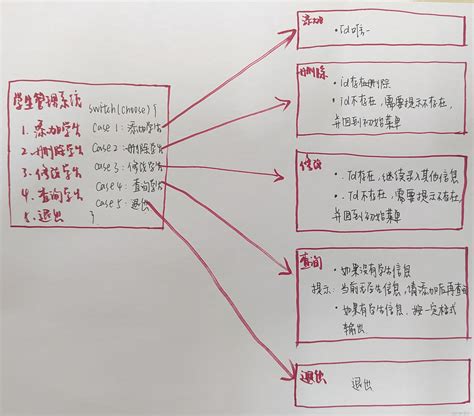 学生管理系统
1. 添加学生
2. 删除学生
3. 修改学生
4. 查询学生
5. 退出
switch(choose){
Case 1: 添加学生
Case 2: 删除学生
case 3: 修改学生
Case 4: 查询学生
Case 5: 退出
}
添加
· Id唯一
删除
· id存在删除
· id不存在, 需要提示不存在,
并回到初始菜单
修改
· Id存在, 继续录入其他信息
· Id不存在, 需要提示不存在,
并回到初始菜单
查询
· 如果没有学生信息
提示: 当前无学生信息, 请添加后再查询
· 如果有学生信息, 按一定格式
输出
退出
退出